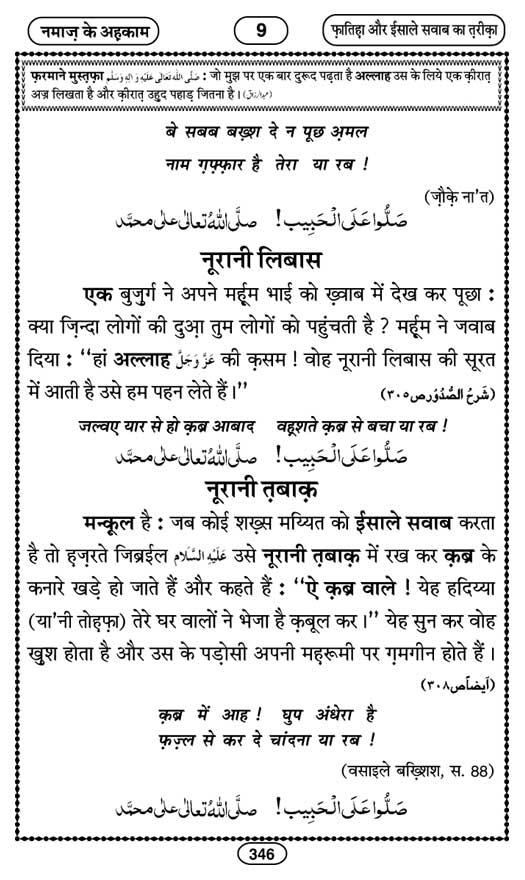 नमाज़ के अहकाम
9
फ़ातिह़ा और ईसाले सवाब का त़रीक़ा
फ़रमाने मुस्त़फ़ा صَلَّى اللهُ تَعَالٰى عَلَيْهِ وَاٰلِهٖ وَسَلَّم : जो मुझ पर एक बार दुरूद पढ़ता है अल्लाह उस के लिये एक क़ीरात़
अज्र लिखता है और क़ीरात़ उह़ुद पहाड़ जितना है।
बे सबब बख़्श दे न पूछ अ़मल
नाम ग़फ़्फ़ार है तेरा या रब !
(ज़ौक़े ना'त)
صَلُّوا عَلَى الْحَبِيب! صلَّى اللهُ تعالٰى على محمَّد
नूरानी लिबास
एक बुज़ुर्ग ने अपने मर्हूम भाई को ख़्वाब में देख कर पूछा :
क्या ज़िन्दा लोगों की दुआ़ तुम लोगों को पहुंचती है ? मर्हूम ने जवाब
दिया : ‘‘हां अल्लाह عَزَّوَجَلَّ की क़सम ! वोह नूरानी लिबास की सूरत
में आती है उसे हम पहन लेते हैं।’’ (شَرحُ الصُّدُورص٣٠٥)
जल्वए यार से हो क़ब्र आबाद वह़्शते क़ब्र से बचा या रब !
صَلُّوا عَلَى الْحَبِيب! صلَّى اللهُ تعالٰى على محمَّد
नूरानी त़बाक़
मन्क़ूल है : जब कोई शख़्स मय्यित को ईसाले सवाब करता
है तो ह़ज़रते जिब्रईल عَلَيْهِ السَّلَام उसे नूरानी त़बाक़ में रख कर क़ब्र के
कनारे खड़े हो जाते हैं और कहते हैं : ‘‘ऐ क़ब्र वाले ! येह हदिय्या
(या'नी तोह़फ़ा) तेरे घर वालों ने भेजा है क़बूल कर।’’ येह सुन कर वोह
खुश होता है और उस के पड़ोसी अपनी महरूमी पर ग़मगीन होते हैं।
(اَيضاًص٣٠٨)
क़ब्र में आह ! घुप अंधेरा है
फ़ज़्ल से कर दे चांदना या रब !
(वसाइले बख़्शिश, स. 88)
صَلُّوا عَلَى الْحَبِيب! صلَّى اللهُ تعالٰى على محمَّد
346